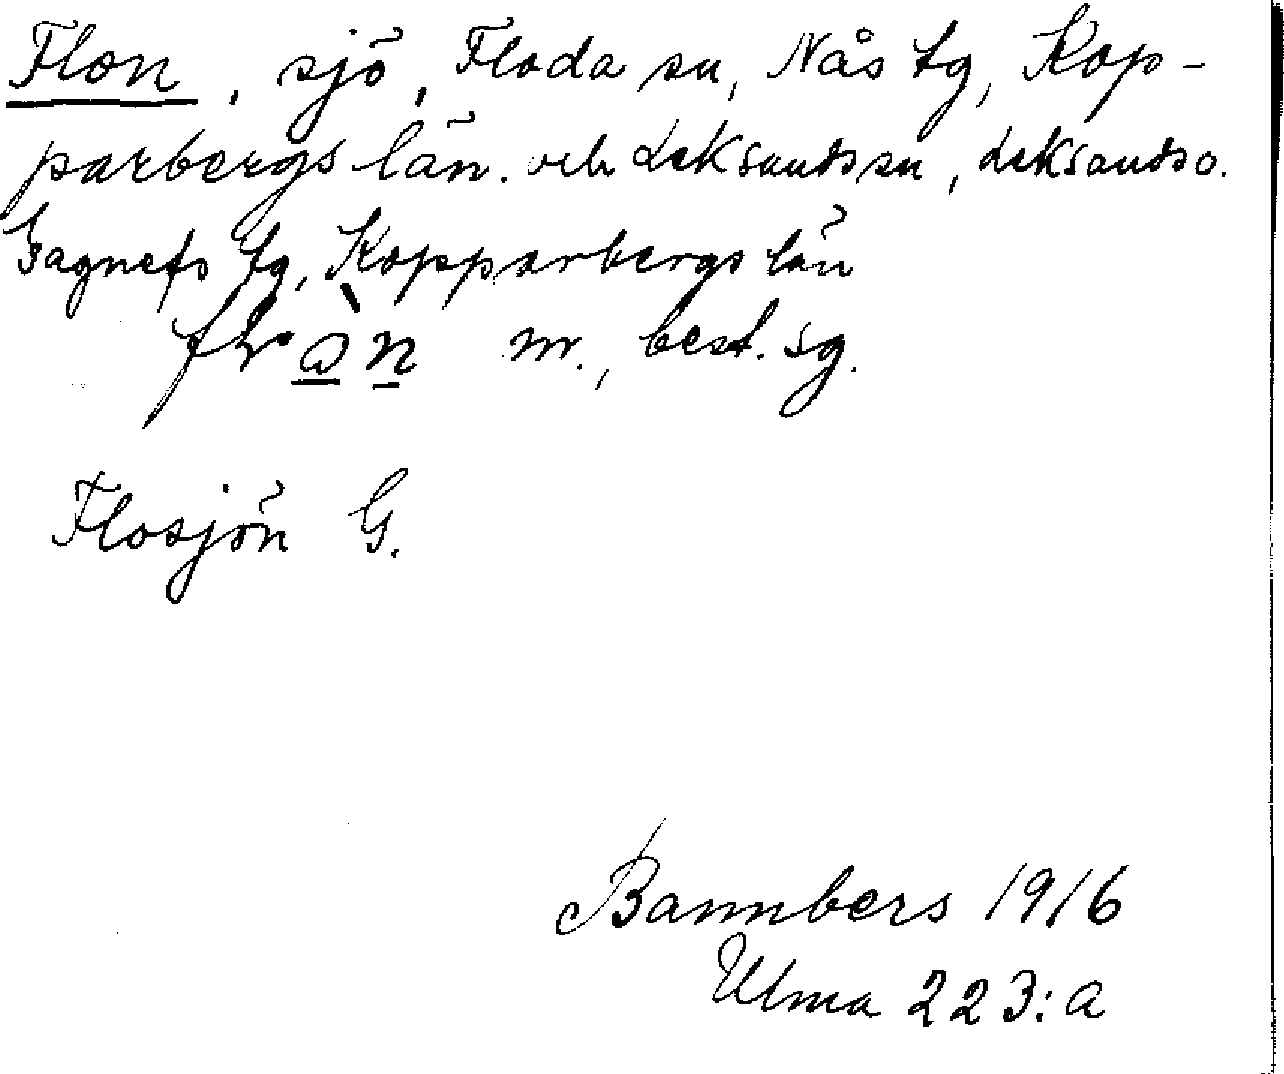 Flon, sjö, Floda sn, Nås tg, Kop-
parbergs län. och Leksands sn, Leksands o.
Gagnefs tg, Kopparbergs län
m., best. sg.
Flosjön G.
Bannbers 1916
Ulma 223:a